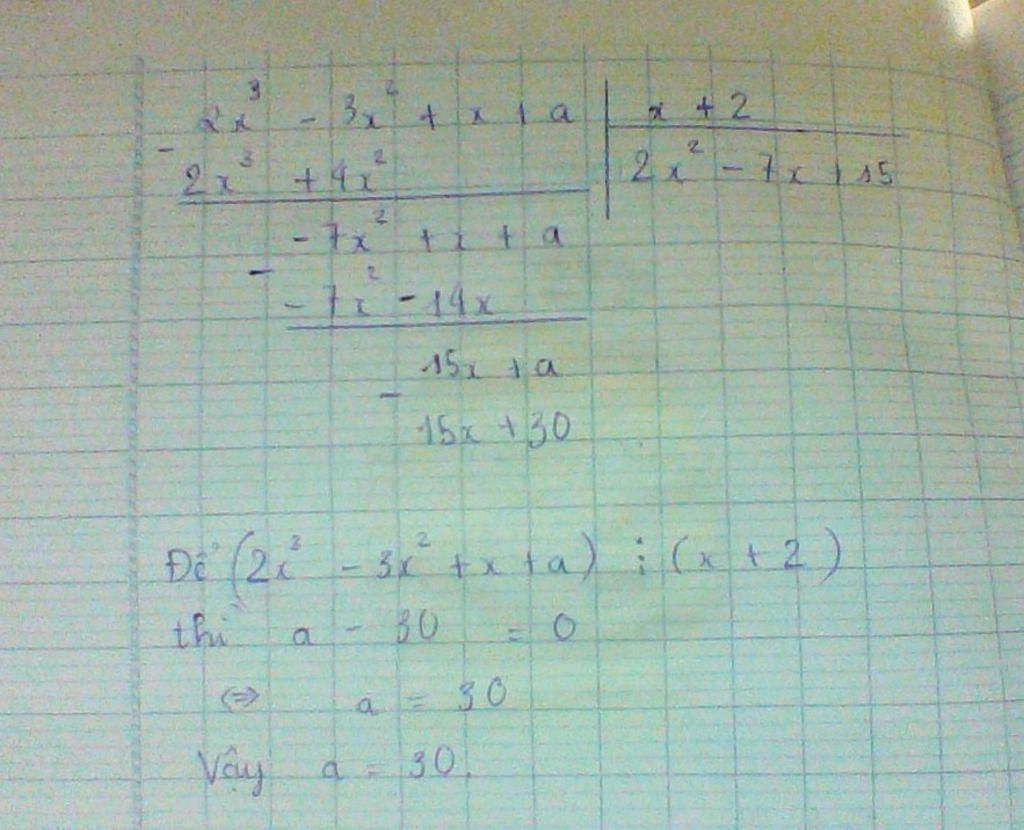 2x³ - 3x² + x + a | x + 2
-
2x³ + 4x² | 2x² - 7x + 15
- 7x² + x + a
-
- 7x² - 14x
15x + a
-
15x + 30
Để (2x³ - 3x² + x + a) ⋮ (x + 2)
thì a - 30 = 0
⇔ a = 30
Vậy a = 30.